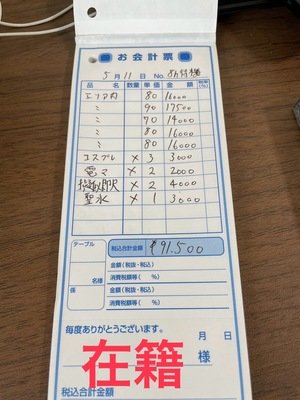 お会計票
5月11日 No. お h 付様
品名 数量 単価 金額 税率(%)
エリア内 80 16000
ミ 90 17500
ミ 70 14000
ミ 80 16000
ミ 80 16000
コスプレ × 3 3000
電マ × 2 2000
× 2 4000
聖水 × 1 3000
テーブル
税込合計金額 ¥91.500
金額(税抜・税込)
名様 消費税額等( %)
係 金額(税抜・税込)
消費税額等( %)
毎度ありがとうございます。
月 日
様
在籍
税込合計金額